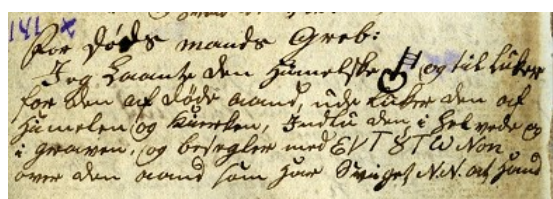 141 x
For Døds mands Greb:
Jeg Laante den Himelske og til Luker
for den af døde aand, ude Luker den af
Himelen og Kierken, Indlu den i Helvede og
i graven, og besegler med E V T & T W Non
over den aand som har Sviget N.N. at Hand